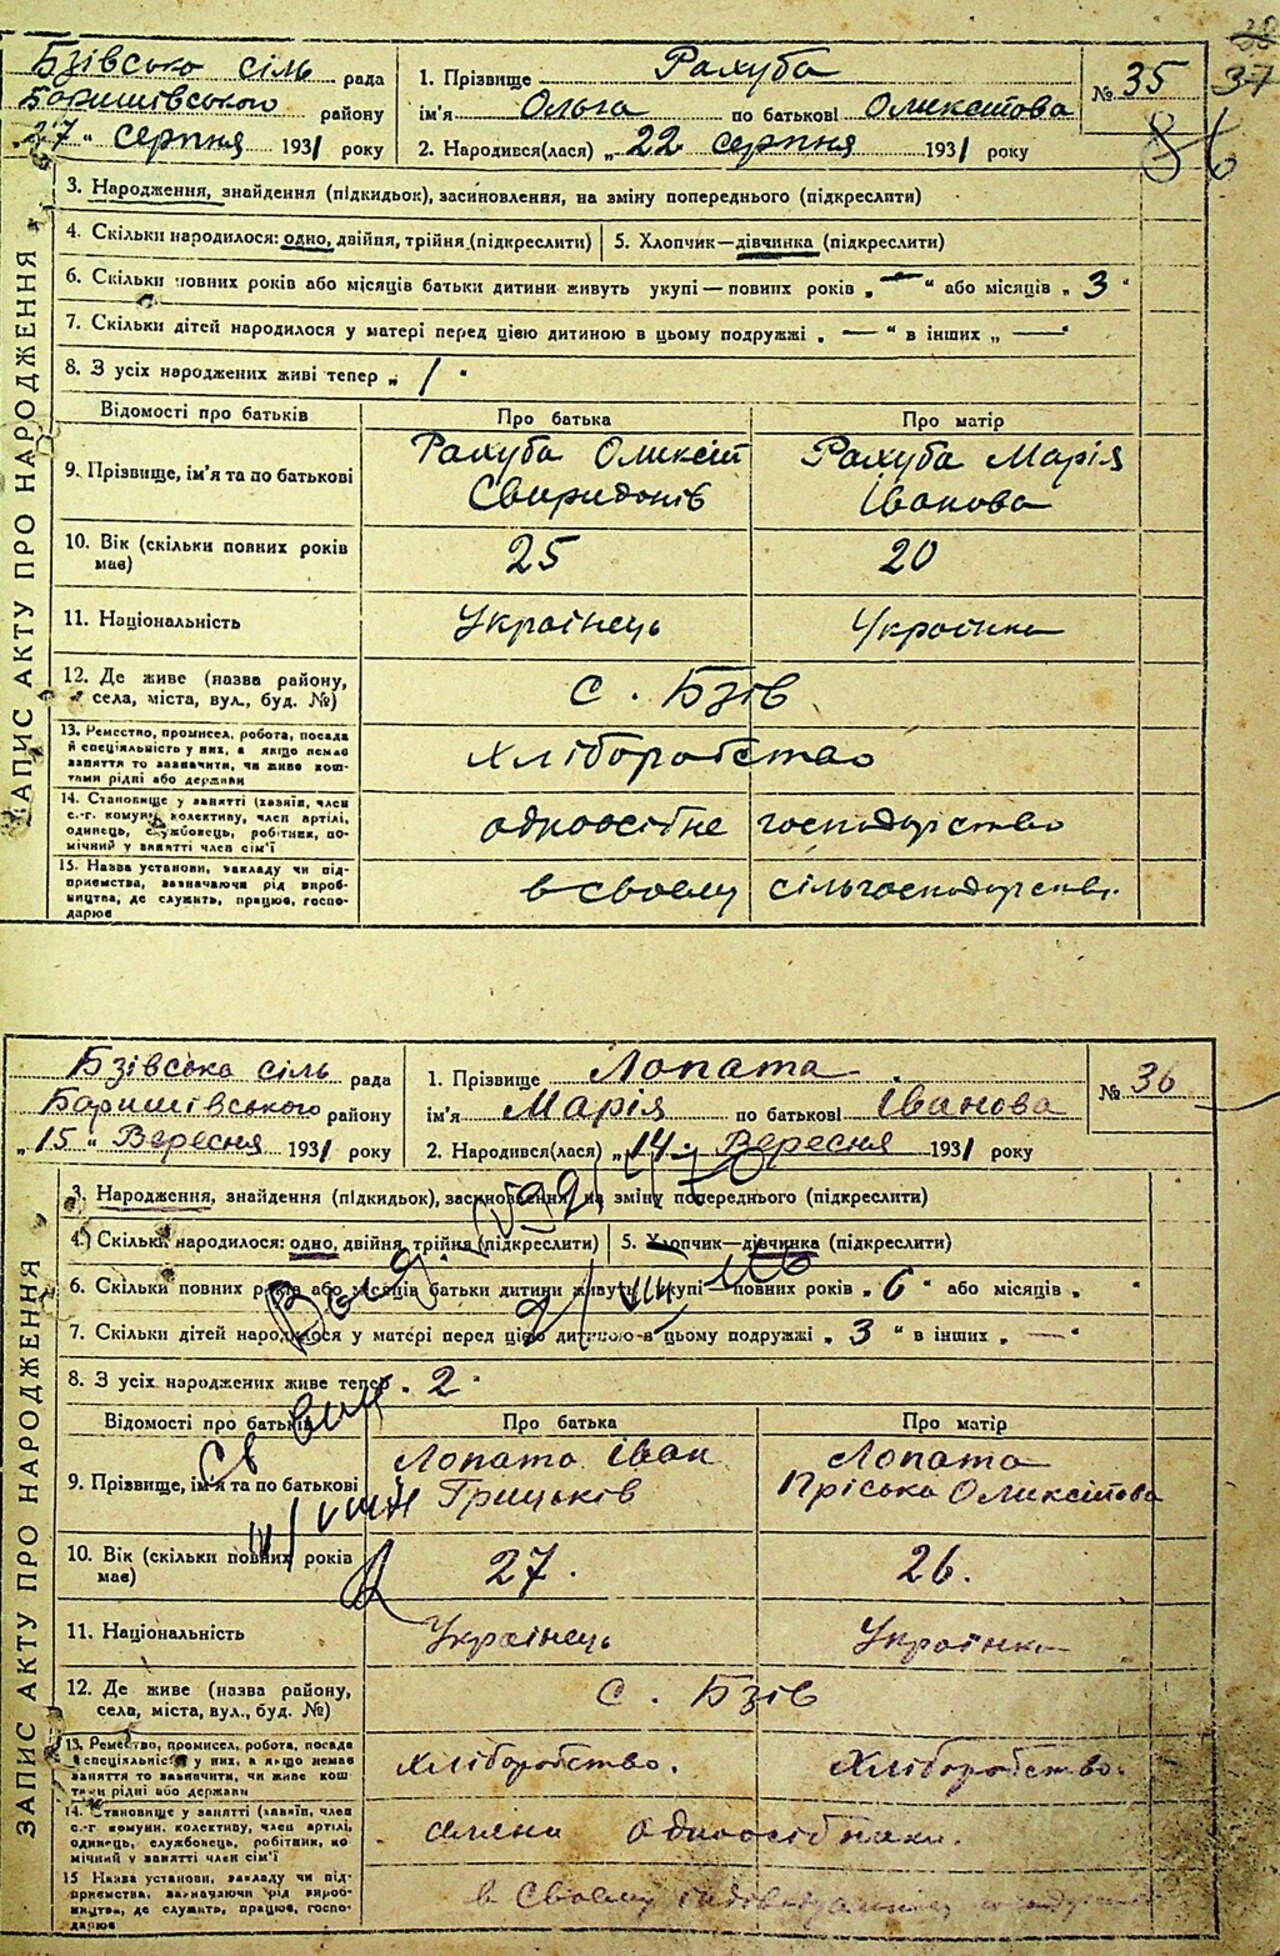 38
37
86
Бзівсько сіль рада
Баришівського району
"27" серпня 1931 року
1. Прізвище Рахуба
ім'я Ольга по батькові Оликсітова
2. Народився(лася) „22 серпня 1931 року
№ 35
ЗАПИС АКТУ ПРО НАРОДЖЕННЯ
3. Народження, знайдення (підкидьок), засиновлення, на зміну попереднього (підкреслити)
4. Скільки народилося: одно, двійня, трійня (підкреслити) 5. Хлопчик—дівчинка (підкреслити)
6. Скільки повних років або місяців батьки дитини живуть укупі—повних років „—“ або місяців „3“
7. Скільки дітей народилося у матері перед цією дитиною в цьому подружжі „—“ в інших „—“
8. З усіх народжених живі тепер „1“
Відомості про батьків Про батька Про матір
9. Прізвище, ім'я та по батькові Рахуба Оликсій Рахуба Марія
Свиридонів Іванова
10. Вік (скільки повних років має) 25 20
11. Національність Українець Українка
12. Де живе (назва району, села, міста, вул., буд. №) с. Бзів
13. Ремество, промисел, робота, посада
й спеціяльність у них, а якщо немає
заняття то зазначити, чи живе кош-
тами рідні або держави
хліборобство
14. Становище у занятті (хазяїн, член
с.-г. комуни, колективу, член артілі,
одинець, службовець, робітник, по-
мічний у занятті член сім'ї
одноосібне господарство
15. Назва установи, закладу чи під-
приємства, зазначаючи рід вироб-
ництва, де служить, працює, госпо-
дарює
в своему сільгосподарстві
Бзівська сіль рада
Баришівського району
„15“ Вересня 1931 року
1. Прізвище Лопата
ім'я Марія по батькові Іванова
2. Народився(лася) „14“ Вересня 1931 року
№ 36
ЗАПИС АКТУ ПРО НАРОДЖЕННЯ
3. Народження, знайдення (підкидьок), засиновлення, на зміну попереднього (підкреслити)
4. Скільки народилося: одно, двійня, трійня (підкреслити) 5. Хлопчик—дівчинка (підкреслити)
6. Скільки повних років або місяців батьки дитини живуть укупі—повних років „6“ або місяців „ “
7. Скільки дітей народилося у матері перед цією дитиною в цьому подружжі „3“ в інших „—“
8. З усіх народжених живе тепер „2“
Відомості про батьків Про батька Про матір
9. Прізвище, ім'я та по батькові Лопата Іван Лопата
Грицьків Пріська Оликсіівова
10. Вік (скільки повних років має) 27. 26.
11. Національність Українець Українка
12. Де живе (назва району, села, міста, вул., буд. №) с. Бзів
13. Ремество, промисел, робота, посада
й спеціяльність у них, а якщо немає
заняття то зазначити, чи живе кош-
тами рідні або держави
хліборобство. хліборобство.
14. Становище у занятті (хазяїн, член
с.-г комуни, колективу, член артілі,
одинець, службовець, робітник, по-
мічний у занятті член сім'ї
одноосібники.
15 Назва установи, закладу чи під-
приємства, зазначаючи рід вироб-
ництва, де служить, працює, госпо-
дарює
в своему